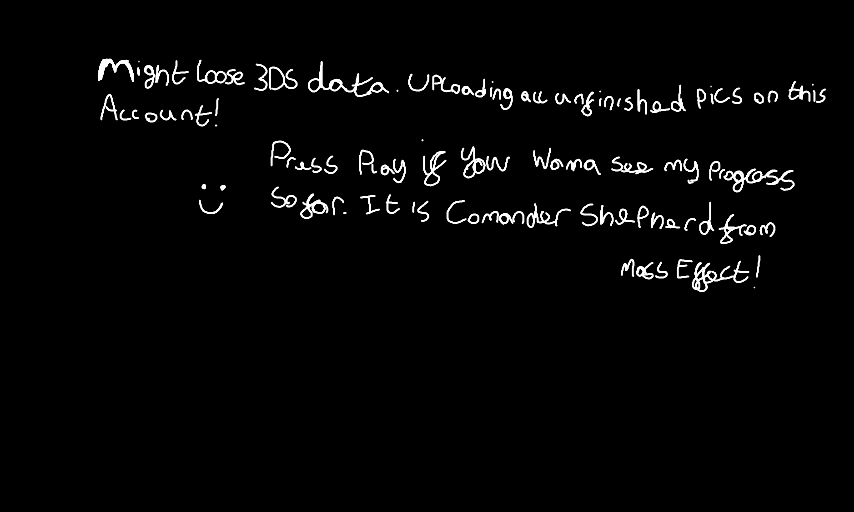 Might loose 3DS data. Uploading all unfinished pics on this
Account!
Press Play if your wana see my progress
So far. It is Comander Shepherd from
Mass Effect!